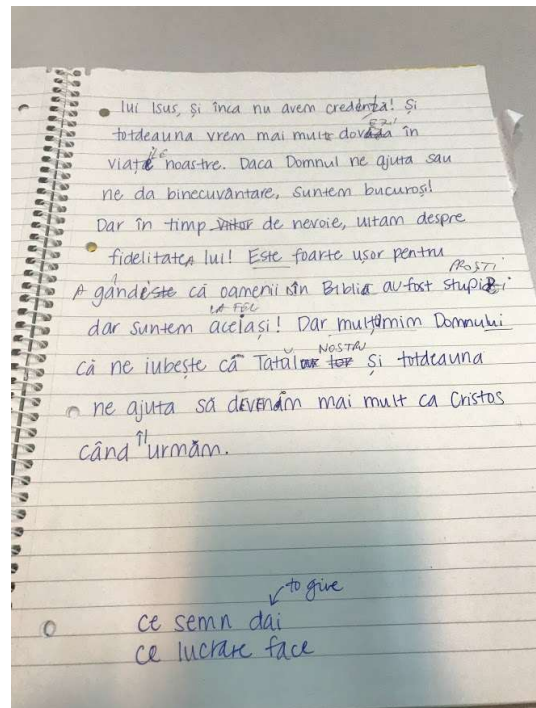 lui Isus, și înca nu avem credența! Și
totdeauna vrem mai mult dovada
EZI
în
viațile noastre. Daca Domnul ne ajuta sau
ne da binecuvântare, suntem bucuroși!
Dar în timp viitor de nevoie, uitam despre
fidelitatea lui! Este foarte ușor pentru
PROȘTI
A gândește că oamenii în Biblia au fost stupizi
LA FEL
dar suntem același! Dar mulțămim Domnului
NOSTRU
că ne iubește că Tatăl și totdeauna
ne ajuta să DEVENĂM mai mult ca Cristos
când îl urmăm.
to give
ce semn dai
ce lucrare face